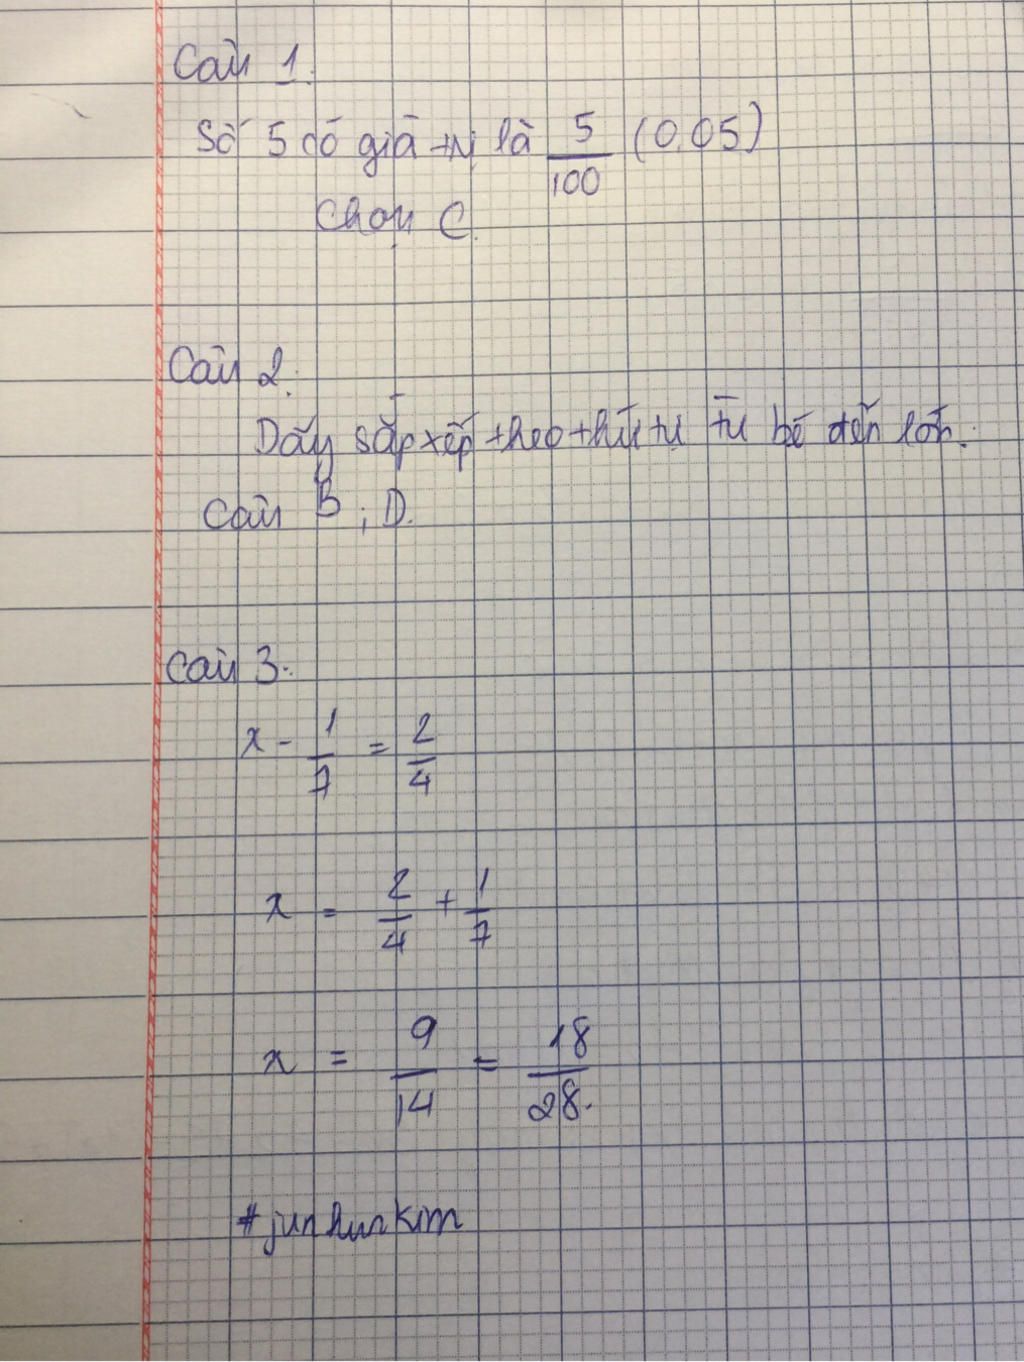 Câu 1.
Số 5 có giá trị là 5/100 (0,05)
Chọn C.
Câu 2.
Dãy sắp xếp theo thứ tự từ bé đến lớn.
Câu B ; D.
Câu 3.
x - 1/7 = 2/4
x = 2/4 + 1/7
x = 9/14 = 18/28.
#junhunkim